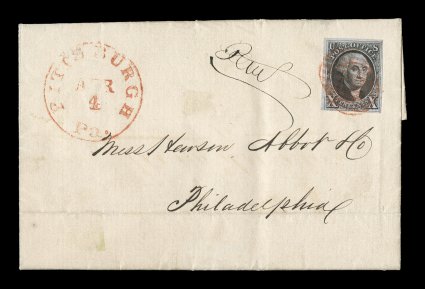 PITTSBURGH
APR
4
Pa.
Paid
POST OFFICE
X X
Mess Hewson Abbot & Co
Philadelphia